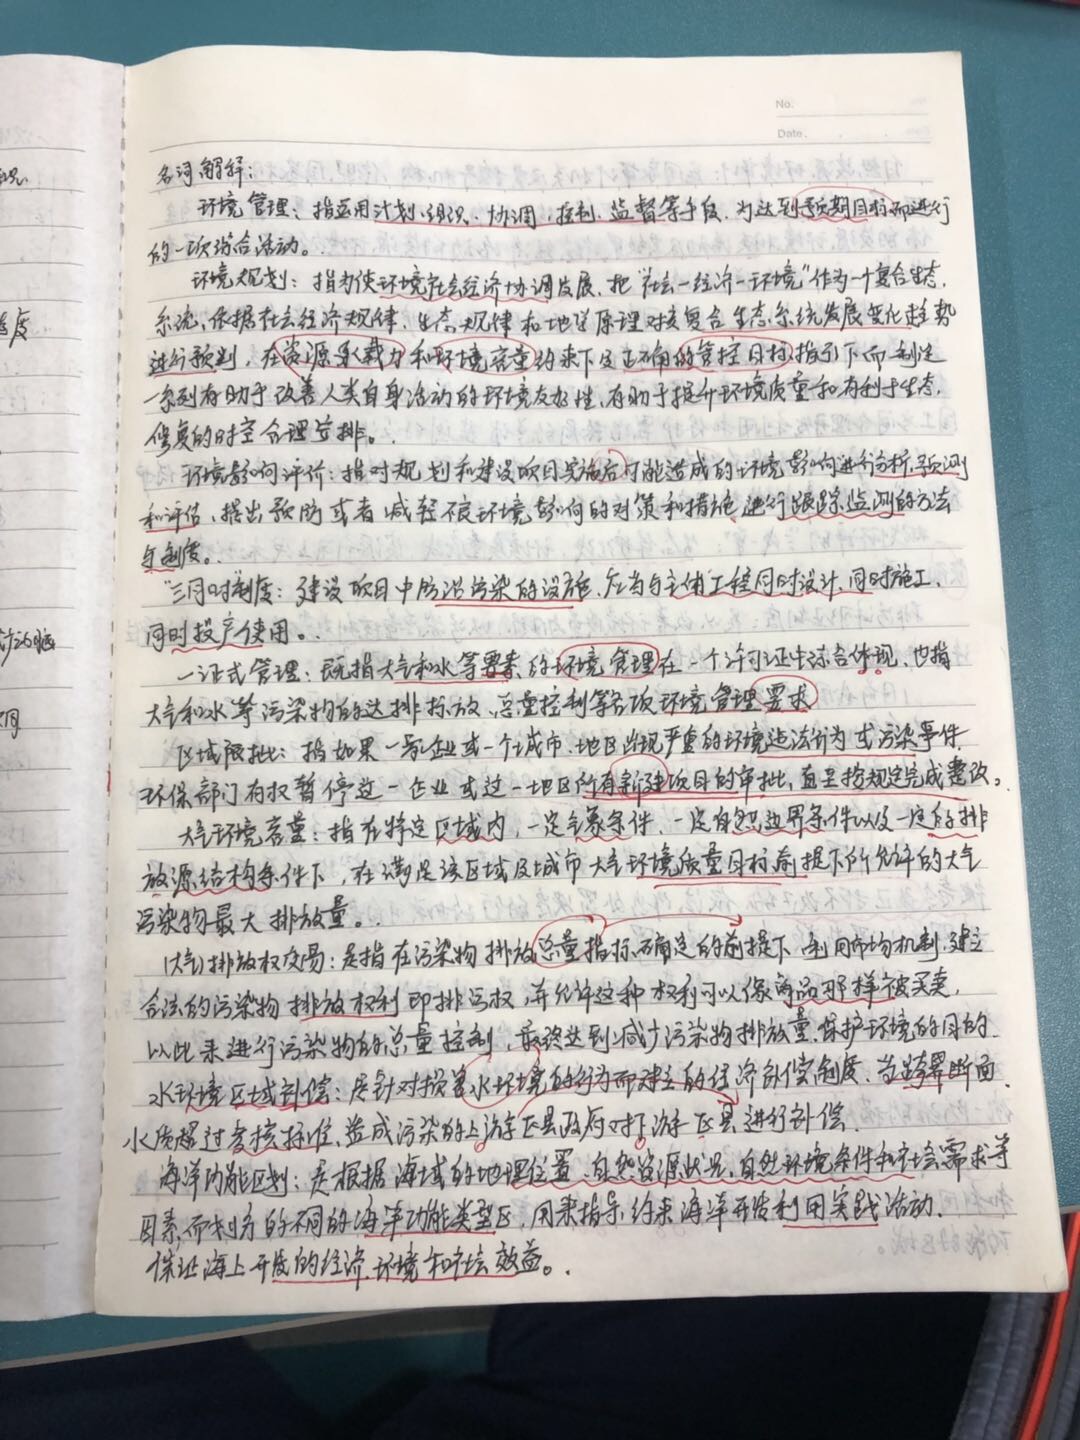 No.
Date.
名词解释：
环境管理：指运用计划、组织、协调、控制、监督等手段，为达到预期目标而进行
的一项综合活动。
环境规划：指为使环境社会经济协调发展，把“社会—经济—环境”作为一个复合生态
系统，依据社会经济规律、生态规律和地学原理对该复合生态系统发展变化趋势
进行预判，在资源承载力和环境容量约束下及正确的管控目标指引下而制定
一系列有助于改善人类自身活动的环境友好性，有助于提升环境质量和有利于生态
修复的时空合理安排。
环境影响评价：指对规划和建设项目实施后可能造成的环境影响进行分析、预测
和评估，提出预防或者减轻不良环境影响的对策和措施，进行跟踪监测的方法
与制度。
“三同时”制度：建设项目中防治污染的设施，应当与主体工程同时设计、同时施工、
同时投产使用。
一证式管理：既指大气和水等要素的环境管理在一个许可证中综合体现，也指
大气和水等污染物的达排标放、总量控制等各项环境管理要求
区域限批：指如果一家企业或一个城市、地区出现严重的环境违法行为或污染事件，
环保部门有权暂停这一企业或这一地区所有新建项目的审批，直至按规定完成整改。
大气环境容量：指在特定区域内，一定气象条件、一定自然边界条件以及一定的排
放源结构条件下，在满足该区域及城市大气环境质量目标前提下所允许的大气
污染物最大排放量。
(大气)排放权交易：是指在污染物排放总量指标确定的前提下，利用市场机制，建立
合法的污染物排放权利即排污权，并允许这种权利可以像商品那样被买卖，
以此来进行污染物的总量控制，最终达到减少污染物排放量、保护环境的目的.
水环境区域补偿：是针对损害水环境的行为而建立的经济补偿制度，当跨界断面
水质超过考核标准，造成污染的上游区县政府对下游区县进行补偿.
海洋功能区划：是根据海域的地理位置、自然资源状况、自然环境条件和社会需求等
因素，而划分的不同的海洋功能类型区，用来指导、约束海洋开发利用实践活动，
保证海上开发的经济、环境和社会效益。